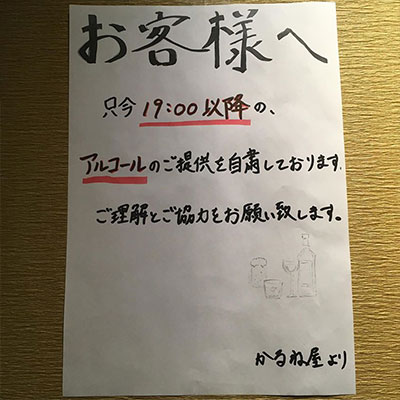 お客様へ
只今19:00以降の、
アルコールのご提供を自粛しております.
ご理解とご協力をお願い致します。
かるね屋より